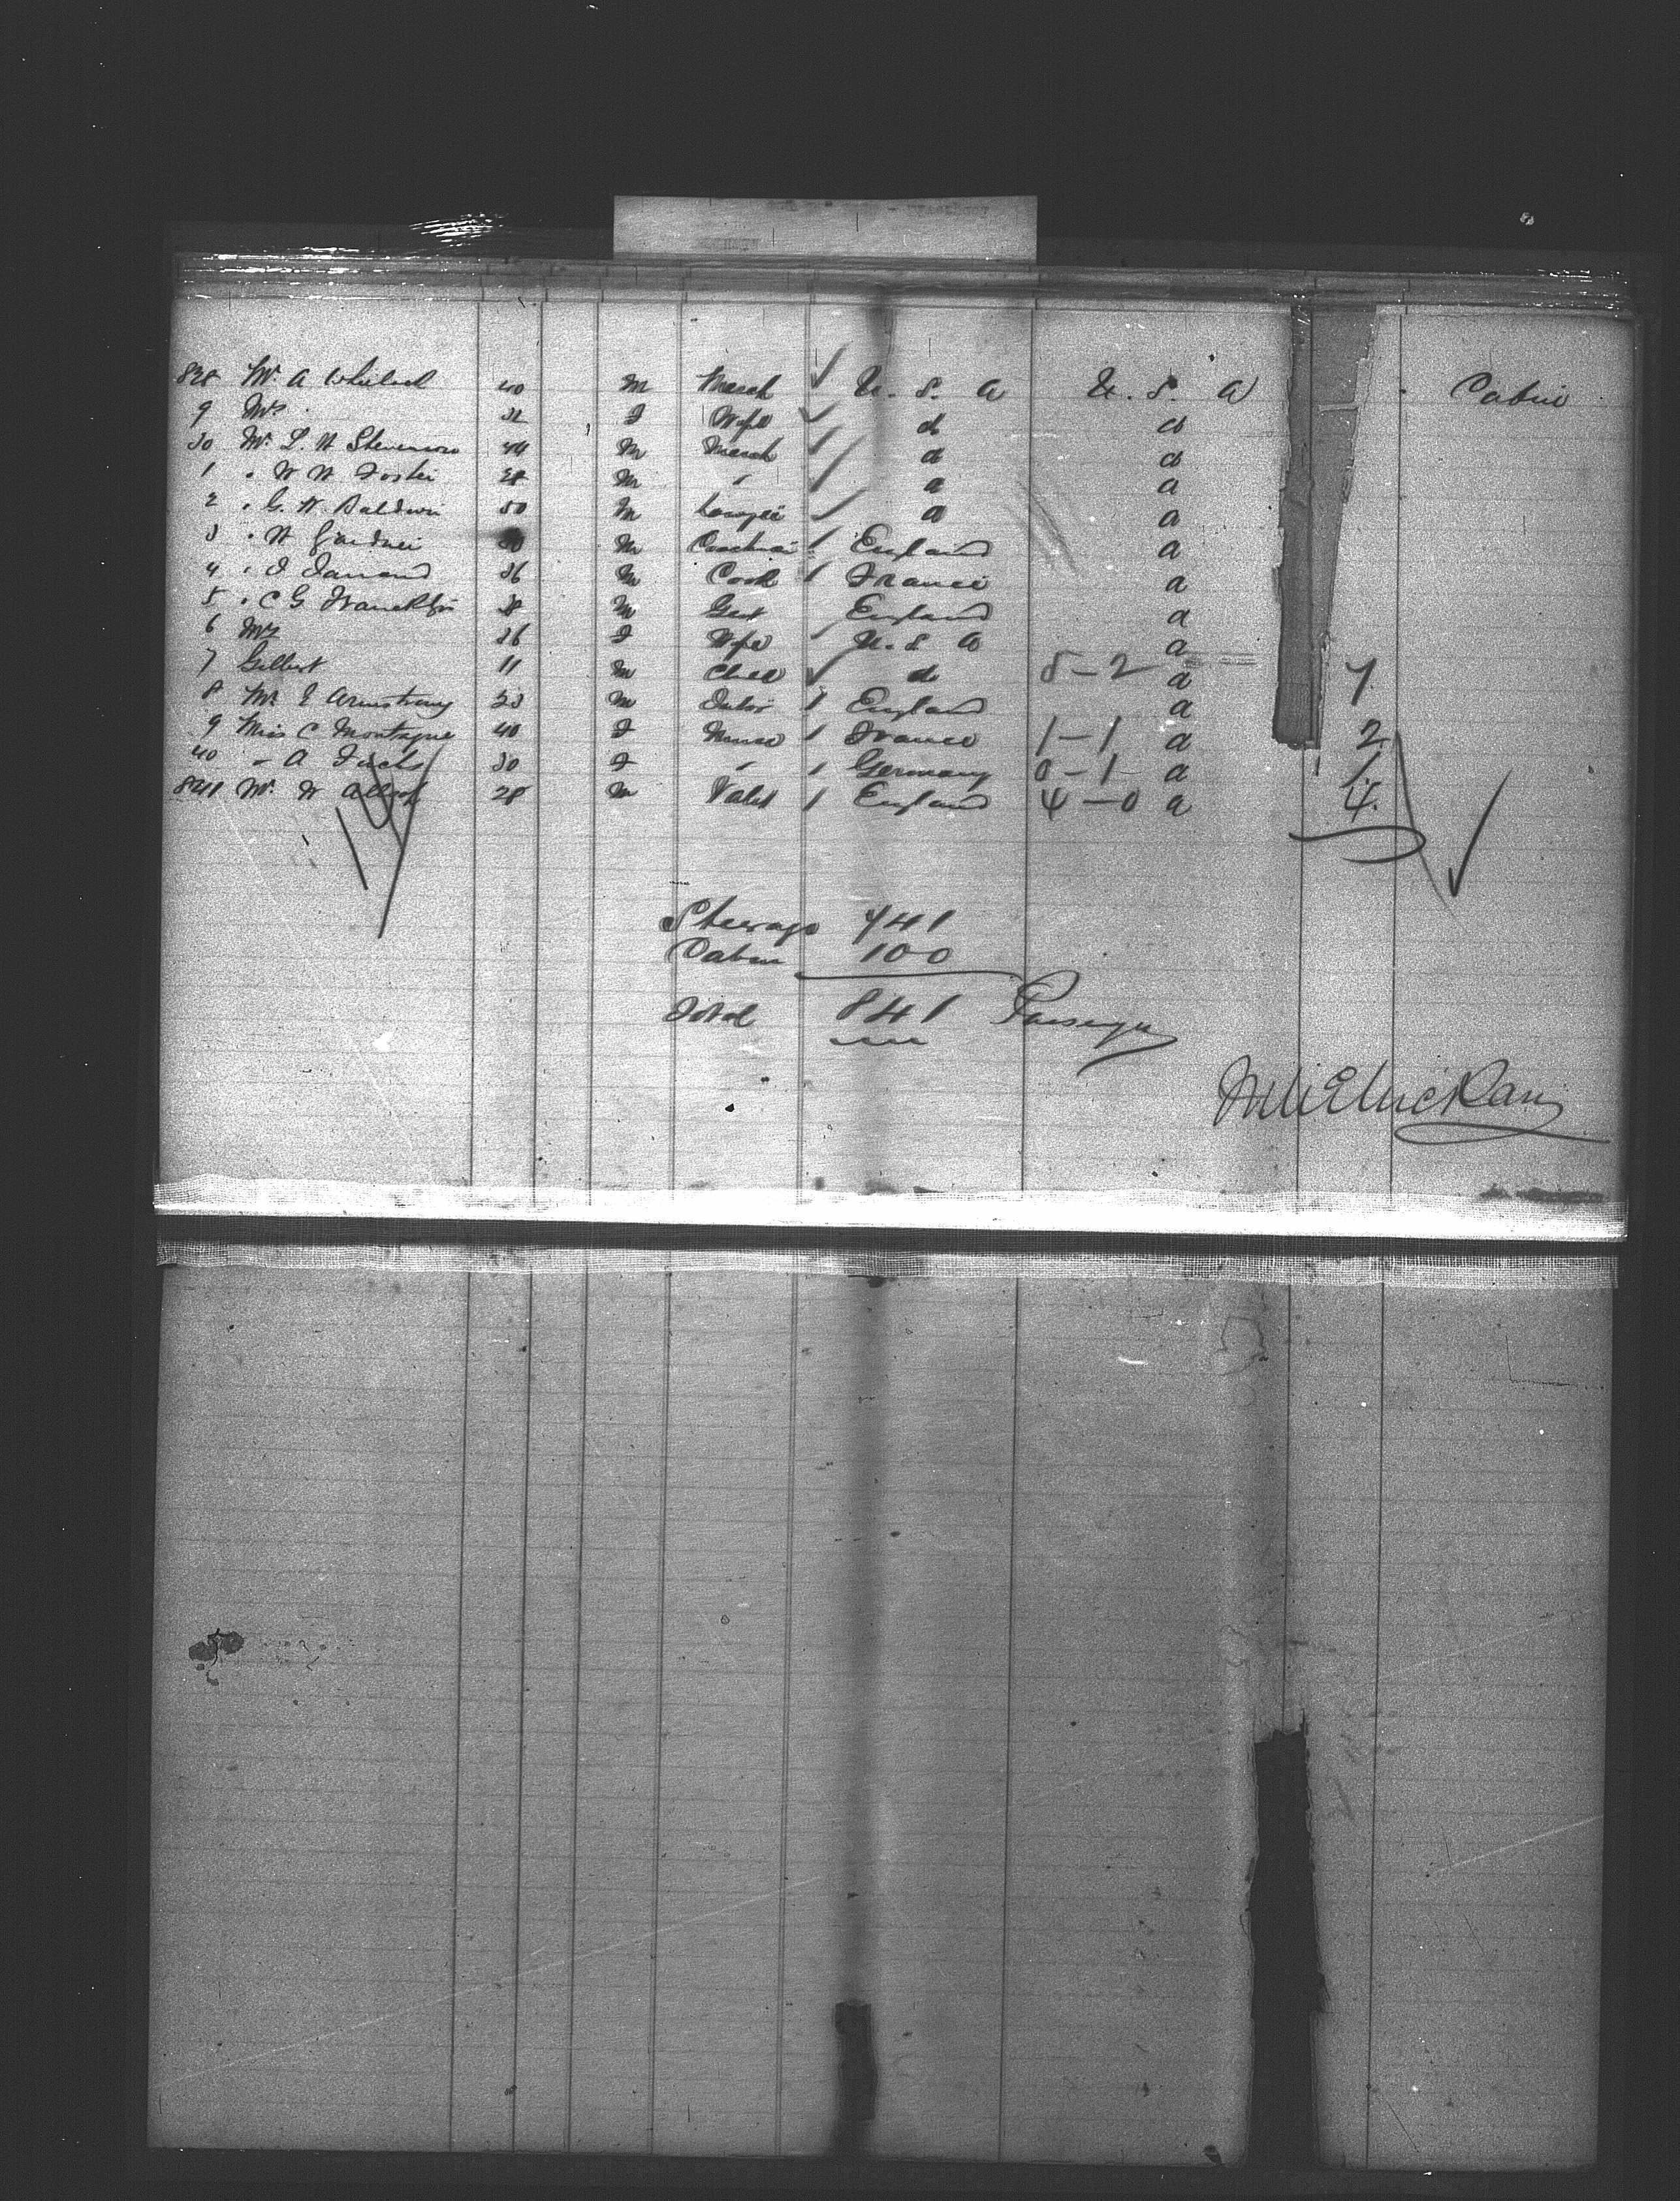 828 Mr. A Whelock 40 M March U. S. A U. S. A Cabin
9 Mrs. 32 F Wife do do
30 Mr. L. H Stevenson 44 M March do do
1 " W H Foster 28 M " do do
2 " G. H. Baldwin 50 M Lawyer do do
3 " H Gardner M Coachman England do
4 " F 36 M Cook France do
5 " C G Francklyn 38 M Gent England do
6 Mrs 36 F Wife U. S. A do
7 Gilbert 11 M Child do 5-2 do 7
8 Mr. E Armstrong 23 M Tutor England do
9 Miss C Montague 40 F Nurse France 1-1 do 2
40 " A Fuchs 30 F " Germany 0-1 do 1
841 Mr. W 28 M Valet England 4-0 do 4
14
Steerage 741
Cabin 100
Total 841 Passengers